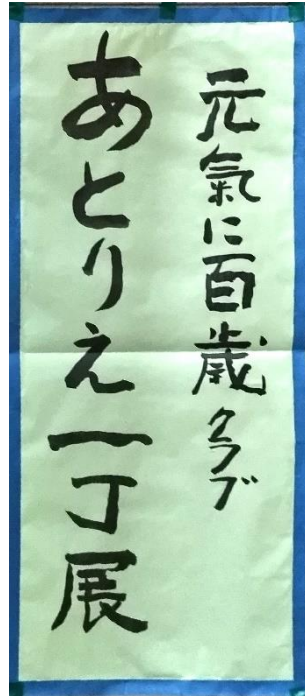 元氣に百歳クラブ
あとりえ一丁展